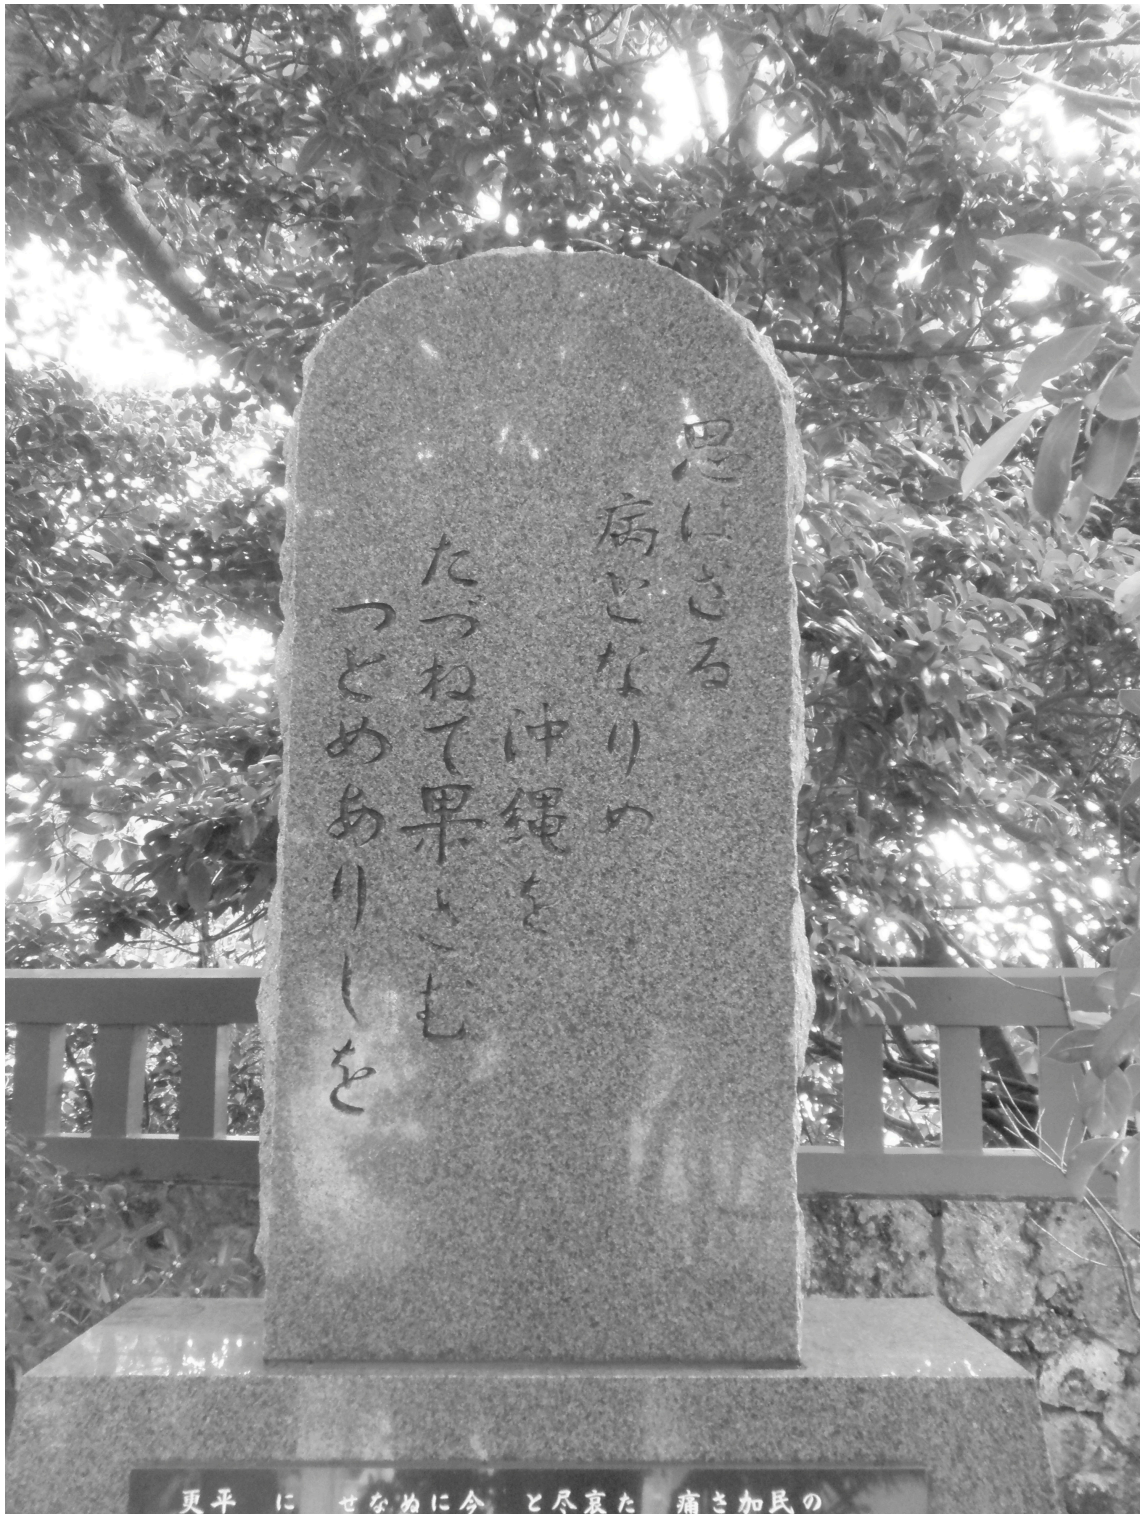 思はさる
病となりぬ
沖縄を
たづねて果さむ
つとめありしを
更平 に せなぬに今 と尽哀た 痛さ加民の